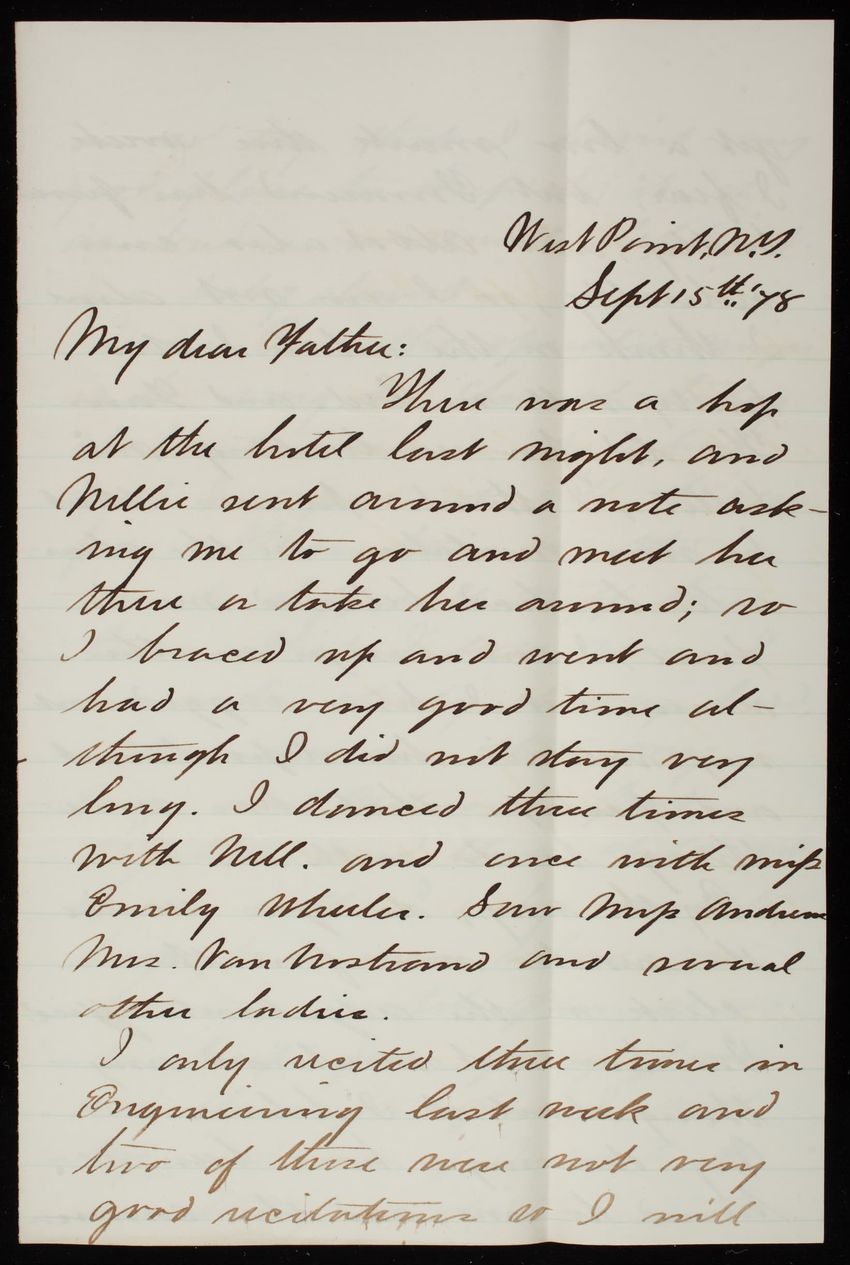 West Point, N.Y.
Sept 15th '78
My dear Father:
There was a hop
at the hotel last night, and
Nellie sent around a note ask-
ing me to go and meet her
there or take her around; so
I braced up and went and
had a very good time al-
though I did not stay very
long. I danced three times
with Nell. and once with miss
Emily Wheeler. Saw Miss Andrews
Mrs. Van Nostrand and several
other ladies.
I only recited three times in
Engineering last week and
two of these were not very
good recitations so I will